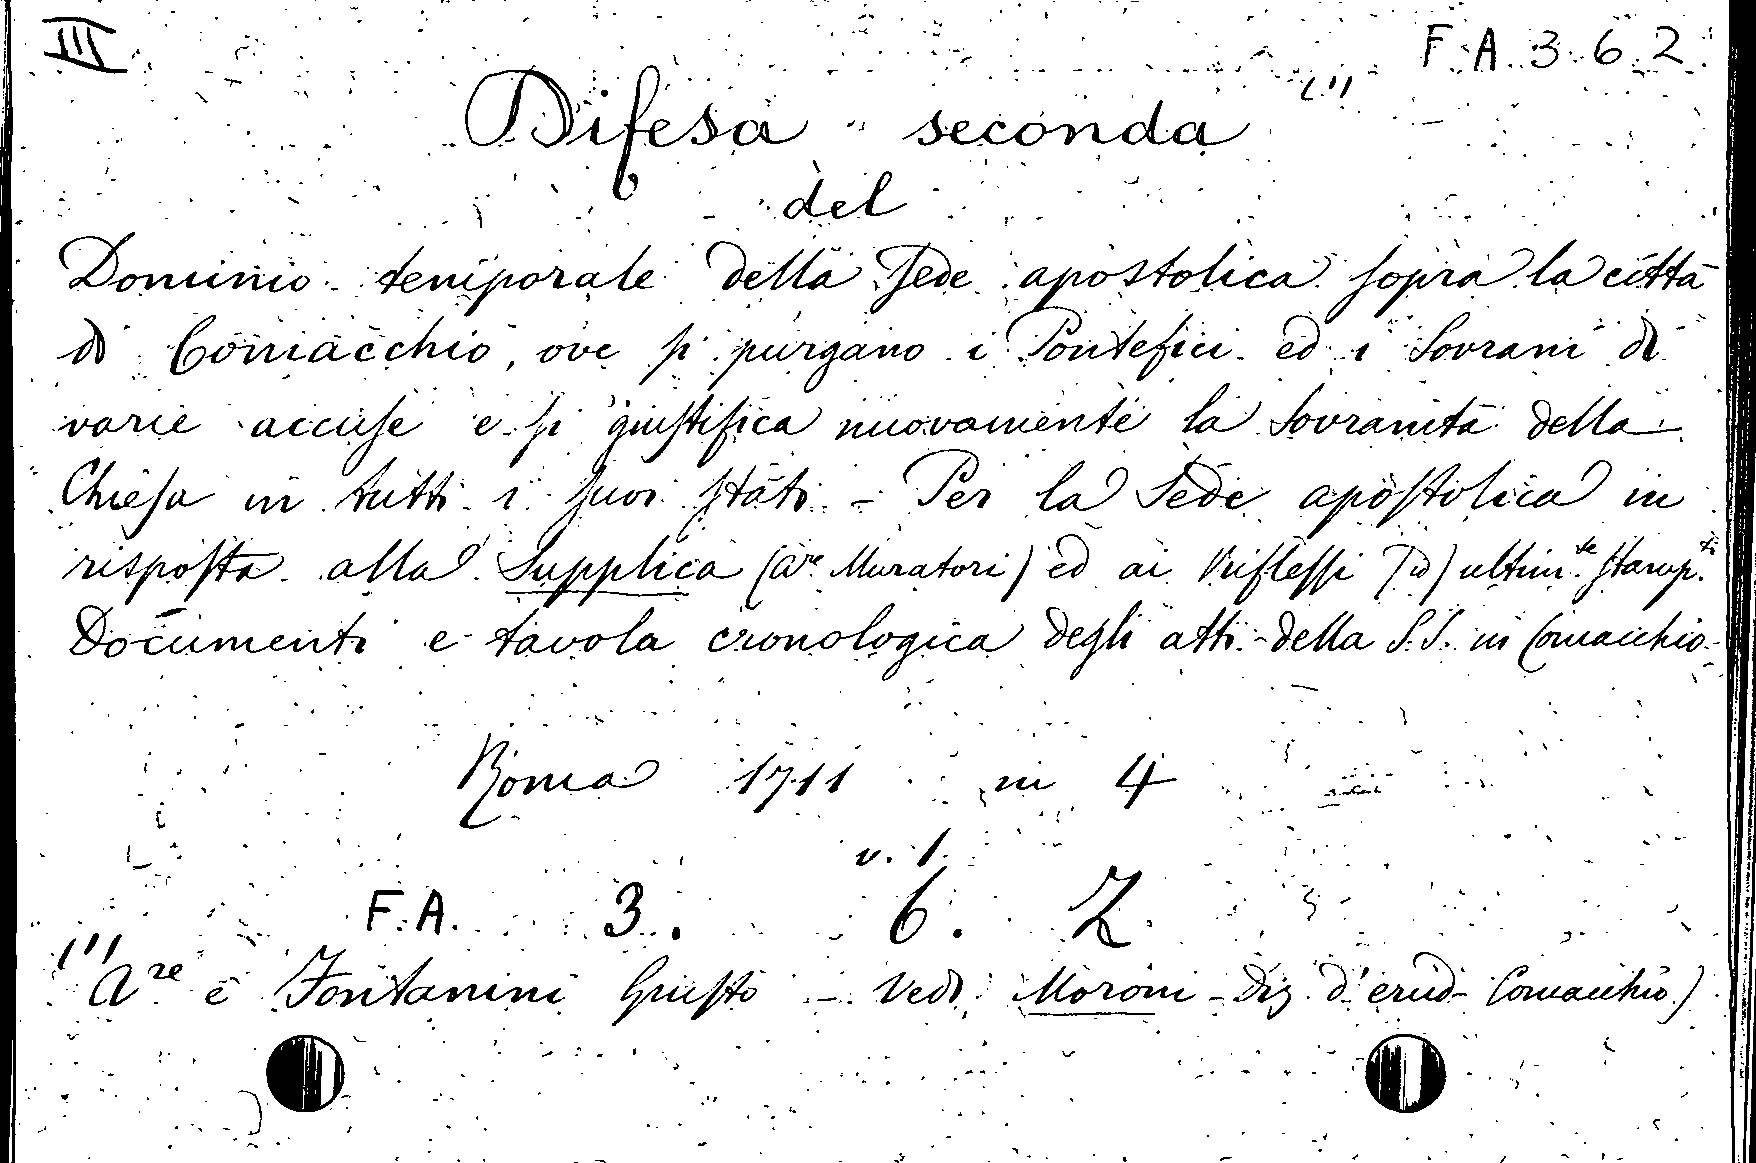 III
F. A. 3. 6. 2.
Difesa seconda (1)
del
Dominio temporale della Sede apostolica sopra la città
di Comacchio, ove si purgano i Pontefici ed i Sovrani di
varie accuse e si giustifica nuovamente la Sovranità della
Chiesa in tutti i suoi stati - Per la Sede apostolica in
risposta alla Supplica (are Muratori) ed ai Riflessi (id) ultim.te stamp.ti
Documenti e tavola cronologica degli atti della S. S. in Comacchio.
Roma 1711 in 4
v. 1.
F. A. 3. 6. 2
(1) Are è Fontanini Giusto - Vedi Moroni - Diz. d'erud- Comacchio)